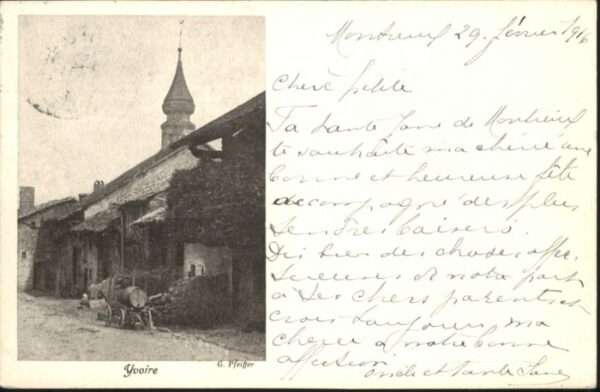 Montreux 29 février 1916
Chère petite
Ta tante Jane de Montreux
te souhaite ma chérie une
bonne et heureuse fête
accompagné des plus
tendres baisers.
Dis bien des choses affec
tueuses de notre part
à tes chers parents et
crois toujours ma
chérie à notre bonne
affection
oncle et tante Jane
Yvoire
G. Pfeiffer